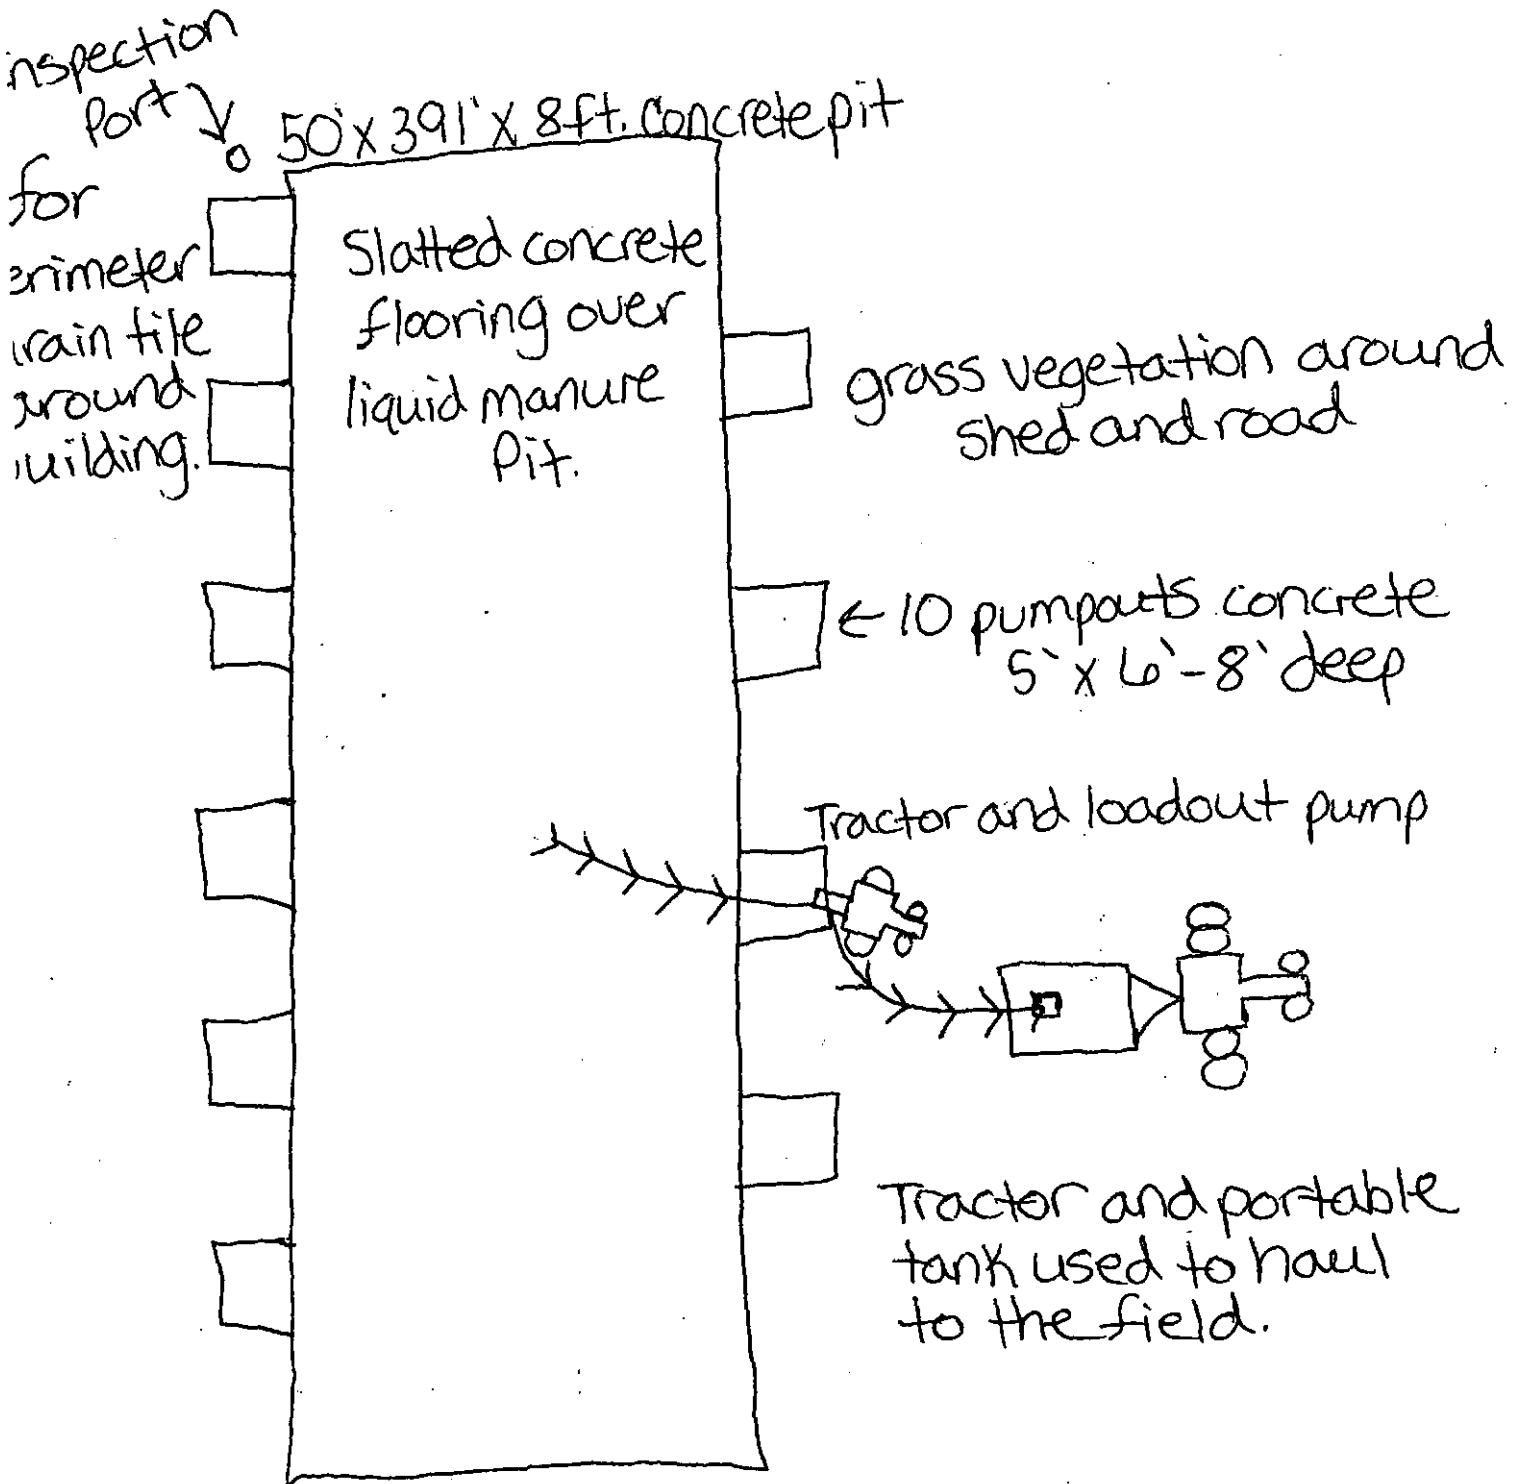 inspection
Port
for
erimeter
rain tile
around
uilding.
50' x 391' x 8ft. concrete pit
Slatted concrete
flooring over
liquid manure
Pit.
grass vegetation around
shed and road
← 10 pumpouts concrete
5' x 6' - 8' deep
Tractor and loadout pump
Tractor and portable
tank used to haul
to the field.